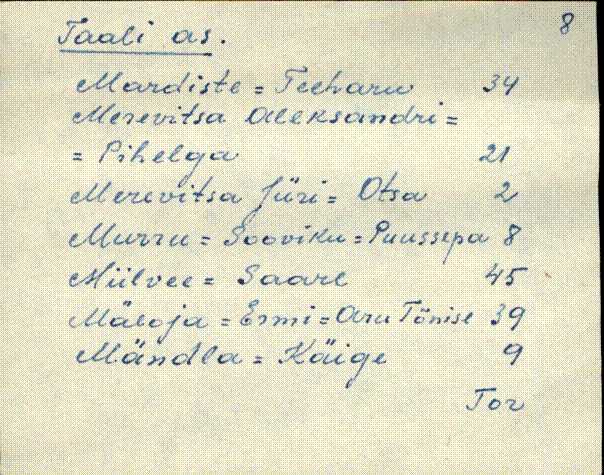 8
Taali as.
Mardiste = Teeharu 34
Merevitsa Aleksandri =
= Pihelga 21
Merevitsa Jüri = Otsa 2
Murru = Sooviku = Puussepa 8
Mülvee = Saare 45
Mäeoja = Ermi = Aru Tõnise 39
Mändla = Käige 9
Tor